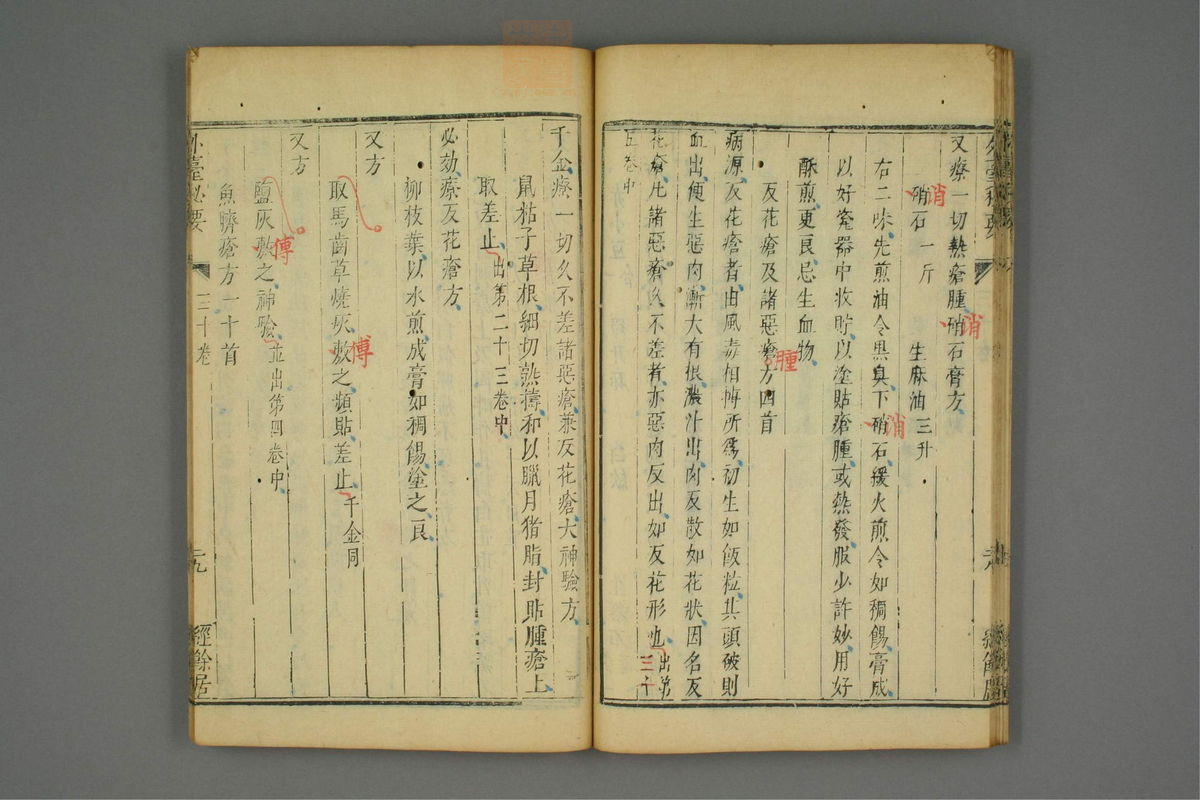 又療一切熱瘡腫硝石膏方
硝石一斤 生麻油三升
消
消
右二味先煎油令黑臭下硝石緩火煎令如稠餳膏成
消
以好瓷器中收貯以塗貼瘡腫或熱發服少許妙用好
酥煎更良忌生血物
反花瘡及諸惡瘡方四首
腫
病源反花瘡者由風毒相搏所爲初生如飯粒其頭破則
血出便生惡肉漸大有根濃汁出肉反散如花狀因名反
花瘡凡諸惡瘡久不差者亦惡肉反出如反花形也出第三十
五卷中
千金療一切久不差諸惡瘡兼反花瘡大神驗方
鼠粘子草根細切熟擣和以臘月猪脂封貼腫瘡上
取差止出第二十三卷中
必効療反花瘡方
柳枝葉以水煎成膏如稠餳塗之良
又方
取馬齒草燒灰敷之頻貼差止千金同
傅
又方
鹽灰敷之神驗並出第四卷中
傅
魚臍瘡方一十首
外臺秘要
三十卷
二九
經餘居